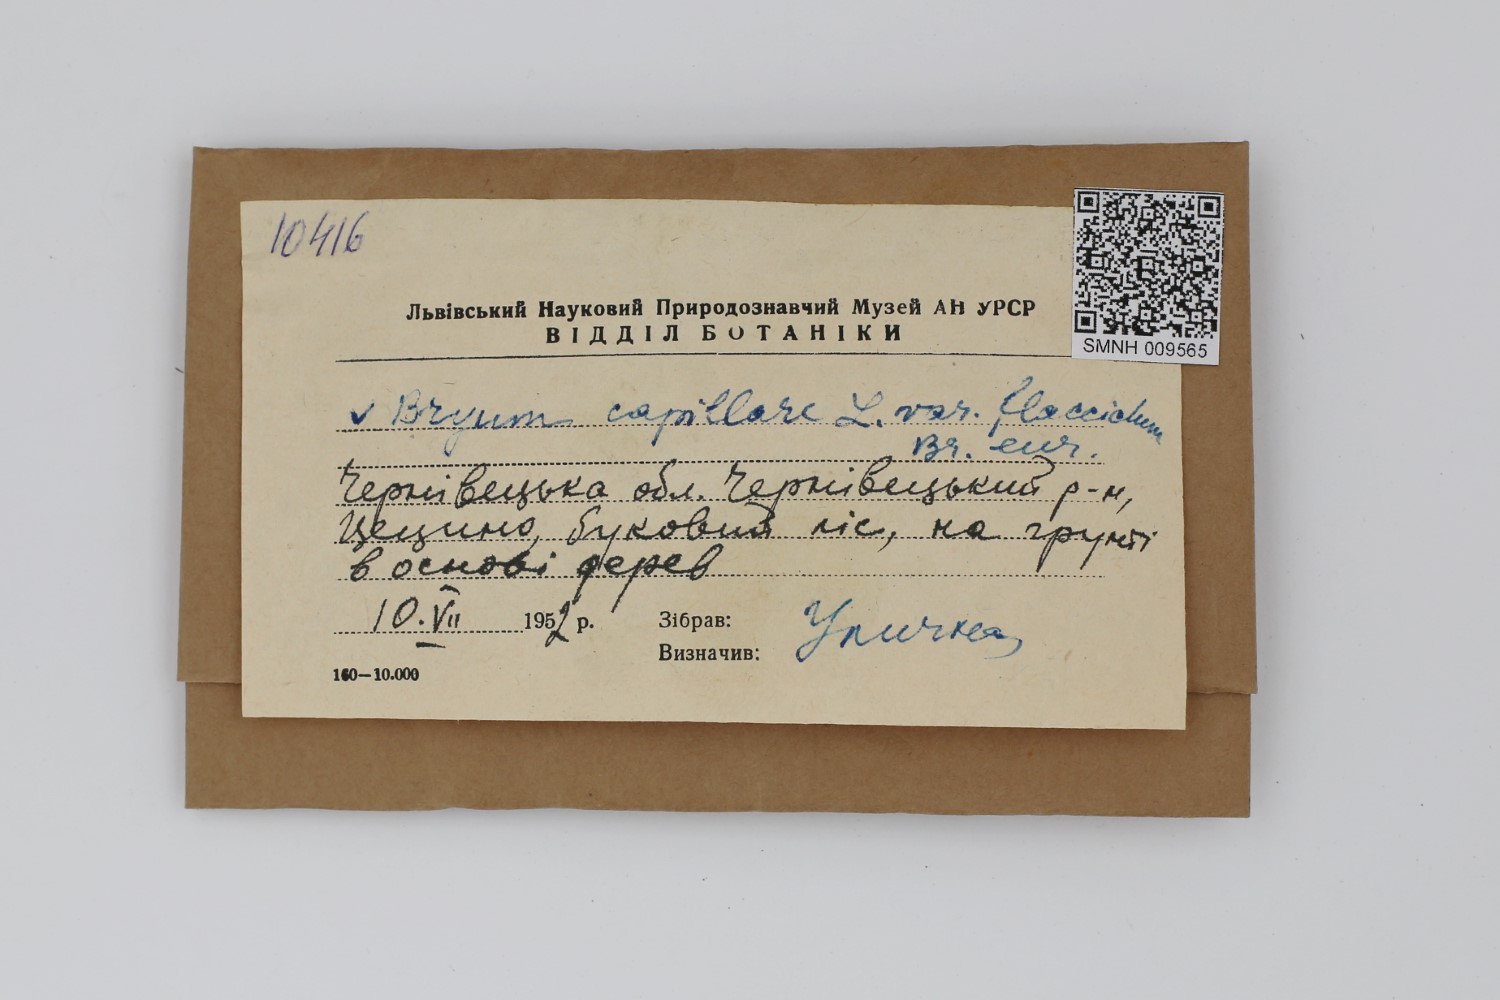 10416
Львівський Науковий Природознавчий Музей АН УРСР
ВІДДІЛ БОТАНІКИ
SMNH 009565
✓ Bryum capillare L. var. flaccidum
Br. eur.
Чернівецька обл. Чернівецький р-н,
Цецино, буковий ліс, на грунті
в основі дерев
10.VII 1952 р. Зібрав: Уличка
Визначив:
160—10.000